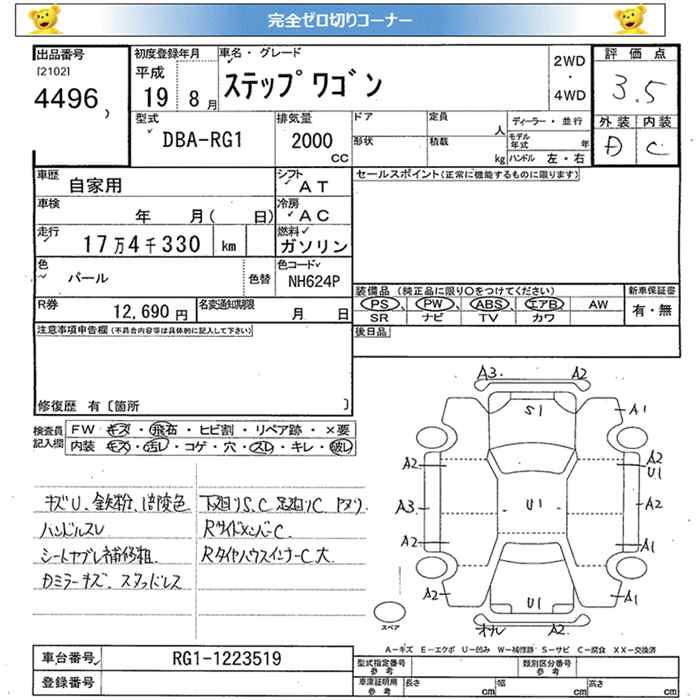 完全ゼロ切りコーナー
出品番号
[2102]
4496
初度登録年月
平成
19 8月
車名・グレード
ステップワゴン
2WD
・
4WD
評価点
3.5
外装 内装
D C
型式
DBA-RG1
排気量
2000
CC
ドア
形状
定員
人
積載
kg
ディーラー・並行
モデル年式 年
ハンドル 左・右
車歴
自家用
シフト
AT
車検
年 月( 日)
冷房
AC
走行
17万4千330 km
燃料
ガソリン
色
パール
色替
色コード
NH624P
R券
12,690円
名変通知期限
月 日
セールスポイント(正常に機能するものに限ります)
装備品 (純正品に限り○をつけてください)
PS PW ABS エアB AW
SR ナビ TV カワ
新車保証書
有・無
後日品
注意事項申告欄(不具合内容等は具体的に記入して下さい)
修復歴 有〔箇所 〕
検査員記入欄
FW キズ・飛石・ヒビ割・リペア跡・×要
内装 キズ・汚レ・コゲ・穴・スレ・キレ・破レ
キズU、鉄粉、
ハンドルスレ
シートヤブレ補修粗
Dミラーキズ、スタッドレス
下廻りS、C 足廻りC
RサイドメンバーC
RタイヤハウスインナーC大
A3 A2
S1
A1
A2
A2
U1
A3
U1
A2
A2
A1
A2
U1
A1
A2
スペア
A-キズ E-エクボ U-凹み W-補修跡 S-サビ C-腐食 XX-交換済
車台番号
RG1-1223519
登録番号
型式指定番号
参考
類別区分番号
参考
車庫証明用
参考
長さ cm
幅 cm
高さ cm